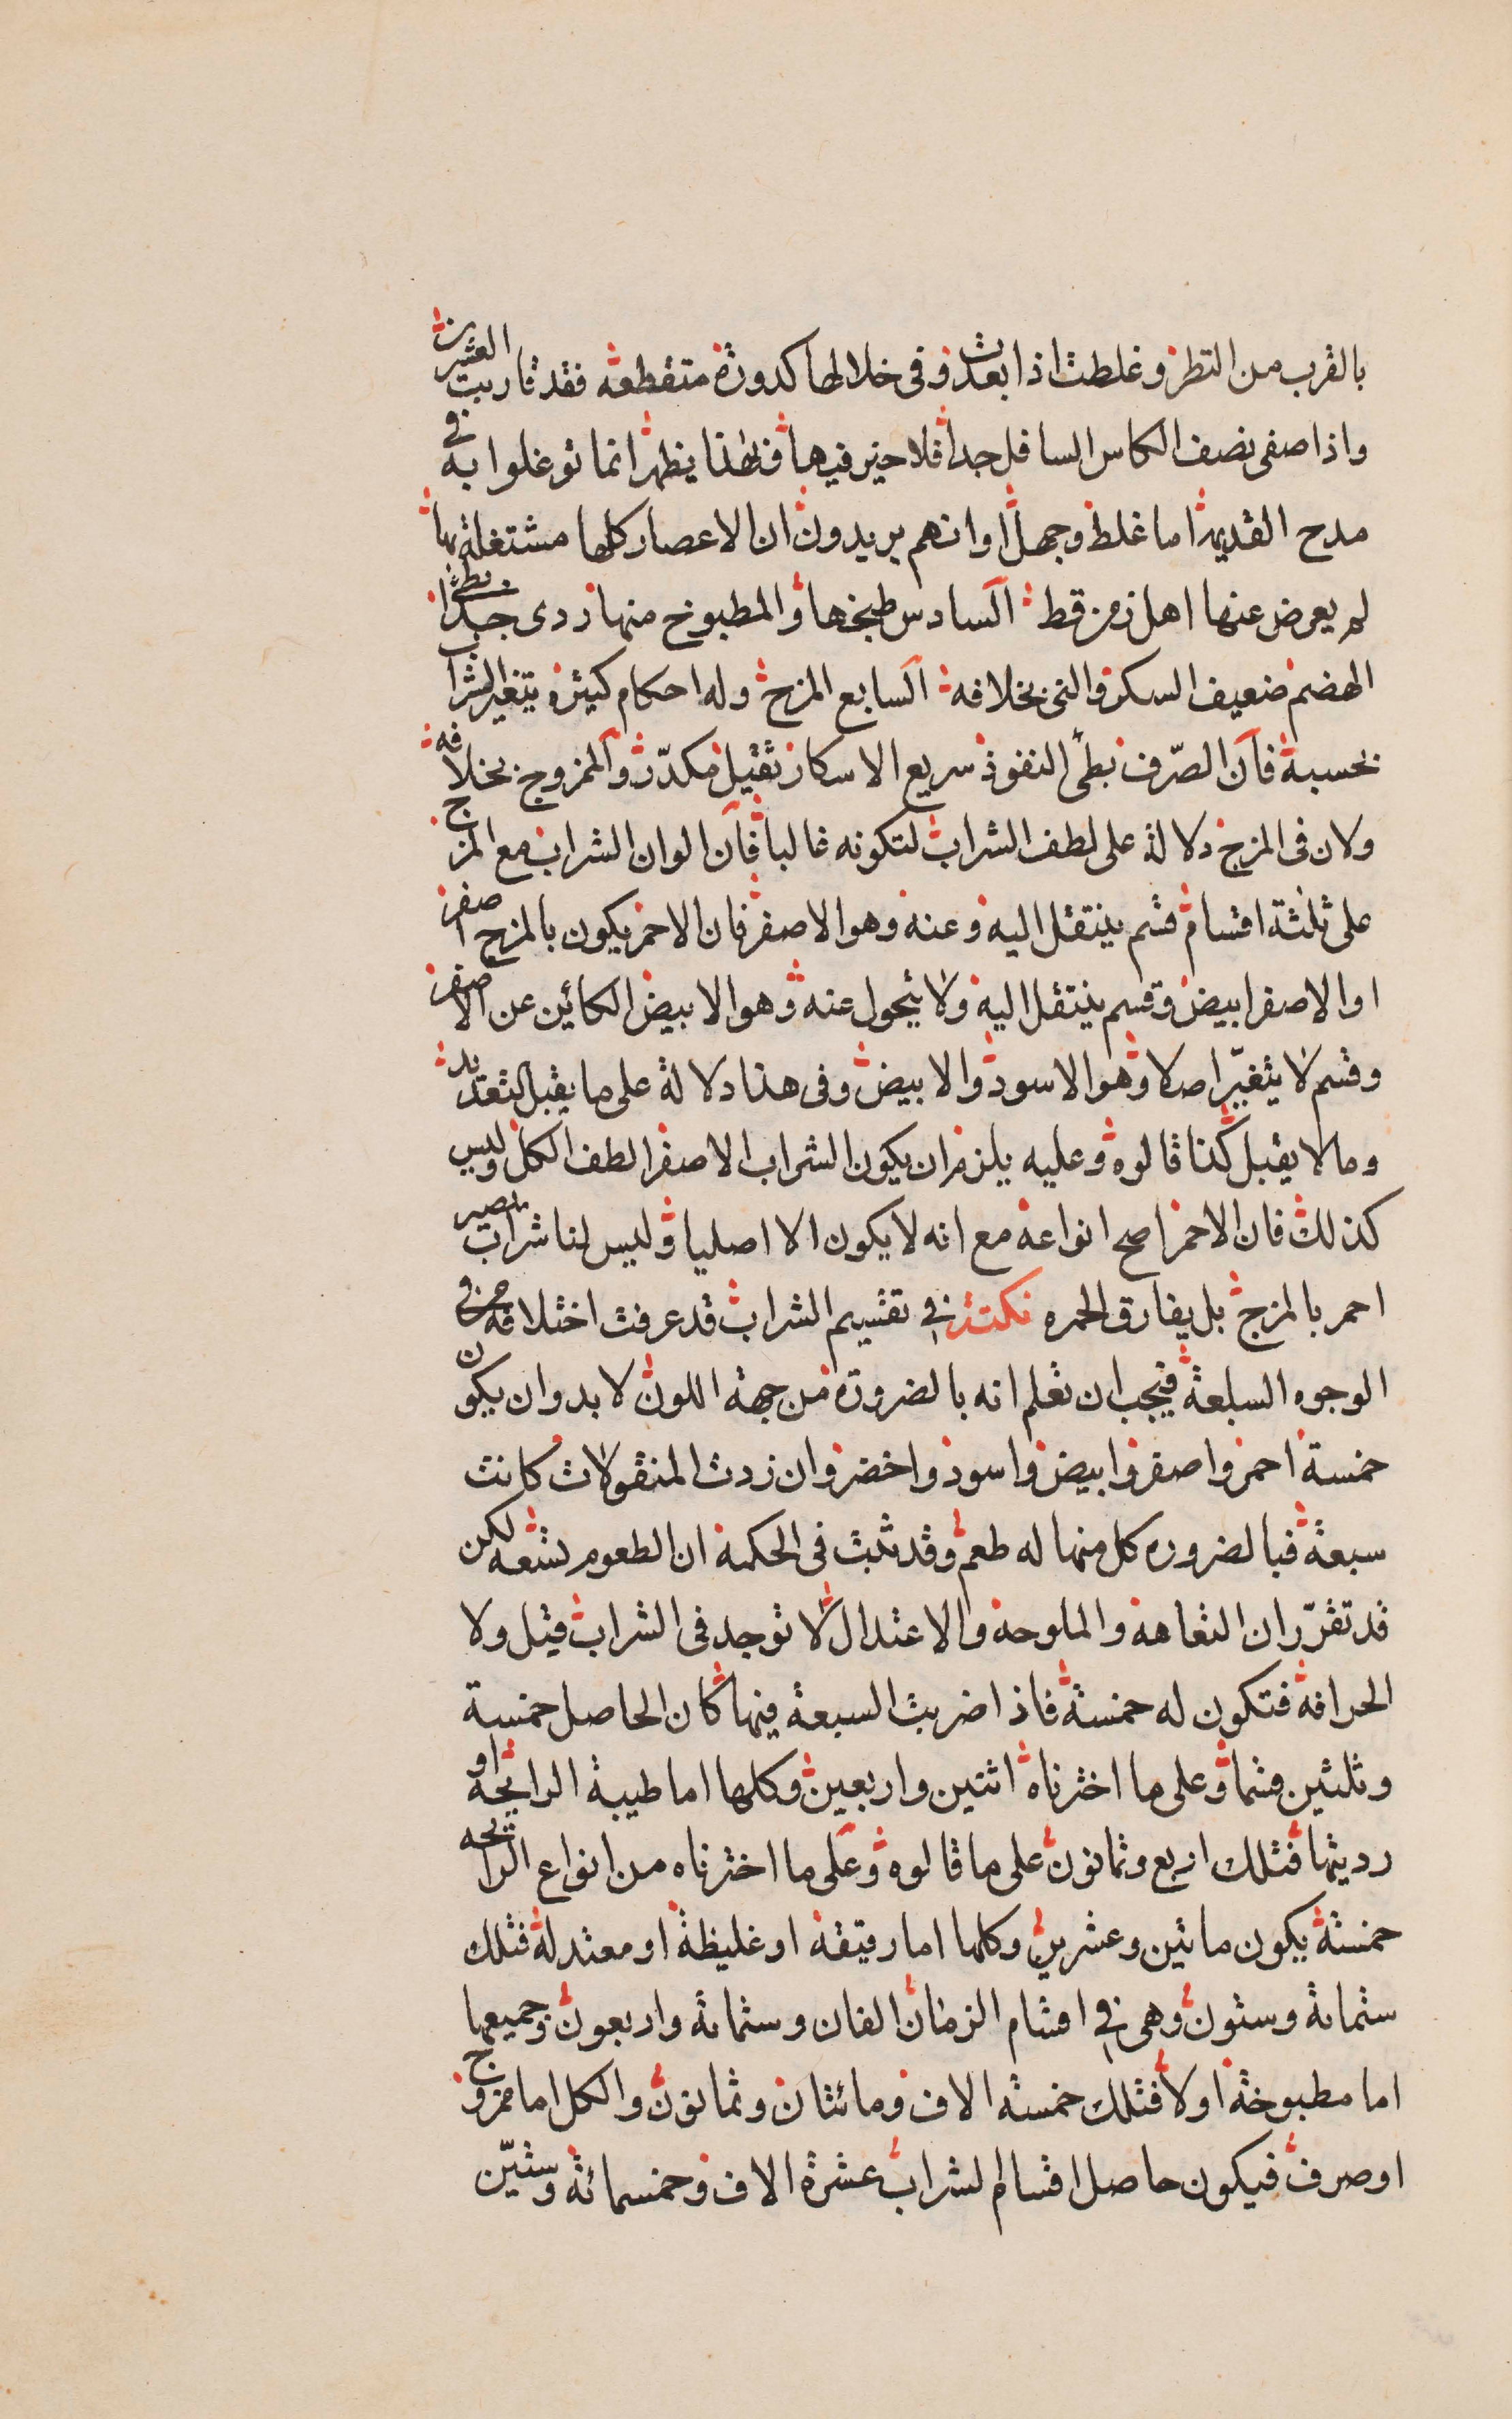 بالقرب من النظر وغلظت اذا بعدت وفى خلالها كدورة متقطعه فقد قاربت العشرين
واذا صفى نصف الكاس السافل جدا فلا خير فيها فبهذا يظهر انما توغلوا به فى
مدح القديمة اما غلط وجهل او انهم يريدون ان الاعصار كلها مشتغلة بها
لم يعرض عنها اهل زمن قط السادس طبخها والمطبوخ منها ردى جدا بطئ
الهضم ضعيف السكر والنى بخلافه السابع المزج وله احكام كثيرة يتغير الشراب
بحسبه فان الصّرف بطئ النفوذ سريع الاسكار ثقيل مكدّر والممزوج بخلافه
ولان فى المزج دلالة على لطف الشراب لتكونه غالبا فان الوان الشراب مع المزج
على ثلثة اقسام قسم ينتقل اليه وعنه وهو الاصفر فان الاحمر يكون بالمزج اصفر
او الاصفر ابيض وقسم ينتقل اليه ولا يتحول عنه وهو الابيض الكائين عن الاصفر
وقسم لا يتغيّر اصلا وهو الاسود والابيض وفى هذا دلالة على ما يقبل التعديد
وما لا يقبل كذا قالوه وعليه يلزم ان يكون الشراب الاصفر الطف الكل وليس
كذلك فان الاحمر اصح انواعه مع انه لا يكون الا اصليا وليس لنا شراب يصير
احمر بالمزج بل يفارق الحمره نكتة فى تقسيم الشراب قد عرفت اختلافه من فى
الوجوه السبعة فيجب ان تعلم انه بالضرورة من جهة اللون لا بد وان يكون
خمسة احمر واصفر وابيض واسود واخضر وان زدت المنقولات كانت
سبعة فبالضروره كل منها له طعم وقد ثبت فى الحكمة ان الطعوم تسعه لكن
قد تقرّر ان التفاهة والملوحة والاعتدال لا توجد فى الشراب قيل ولا
الحرافة فتكون له خمسة فاذا ضربت السبعة فيها كان الحاصل خمسة
وثلثين قسما وعلى ما اخترناه اثنين واربعين وكلها اما طيبة الرايحة او
رديتها فتلك اربع وثمانون على ما قالوه وعلى ما اخترناه من انواع الرايحه
خمسة يكون مائتين وعشرين وكلها اما رقيقة او غليظة او معتدلة فتلك
ستمائة وستون وهى فى اقسام الزمان الفان وستمائة واربعون وجميعها
اما مطبوخة اولا فتلك خمسة الاف ومائتان وثمانون والكل اما ممزوج
او صرف فيكون حاصل اقسام الشراب عشرة الاف وخمسمائة وستّين